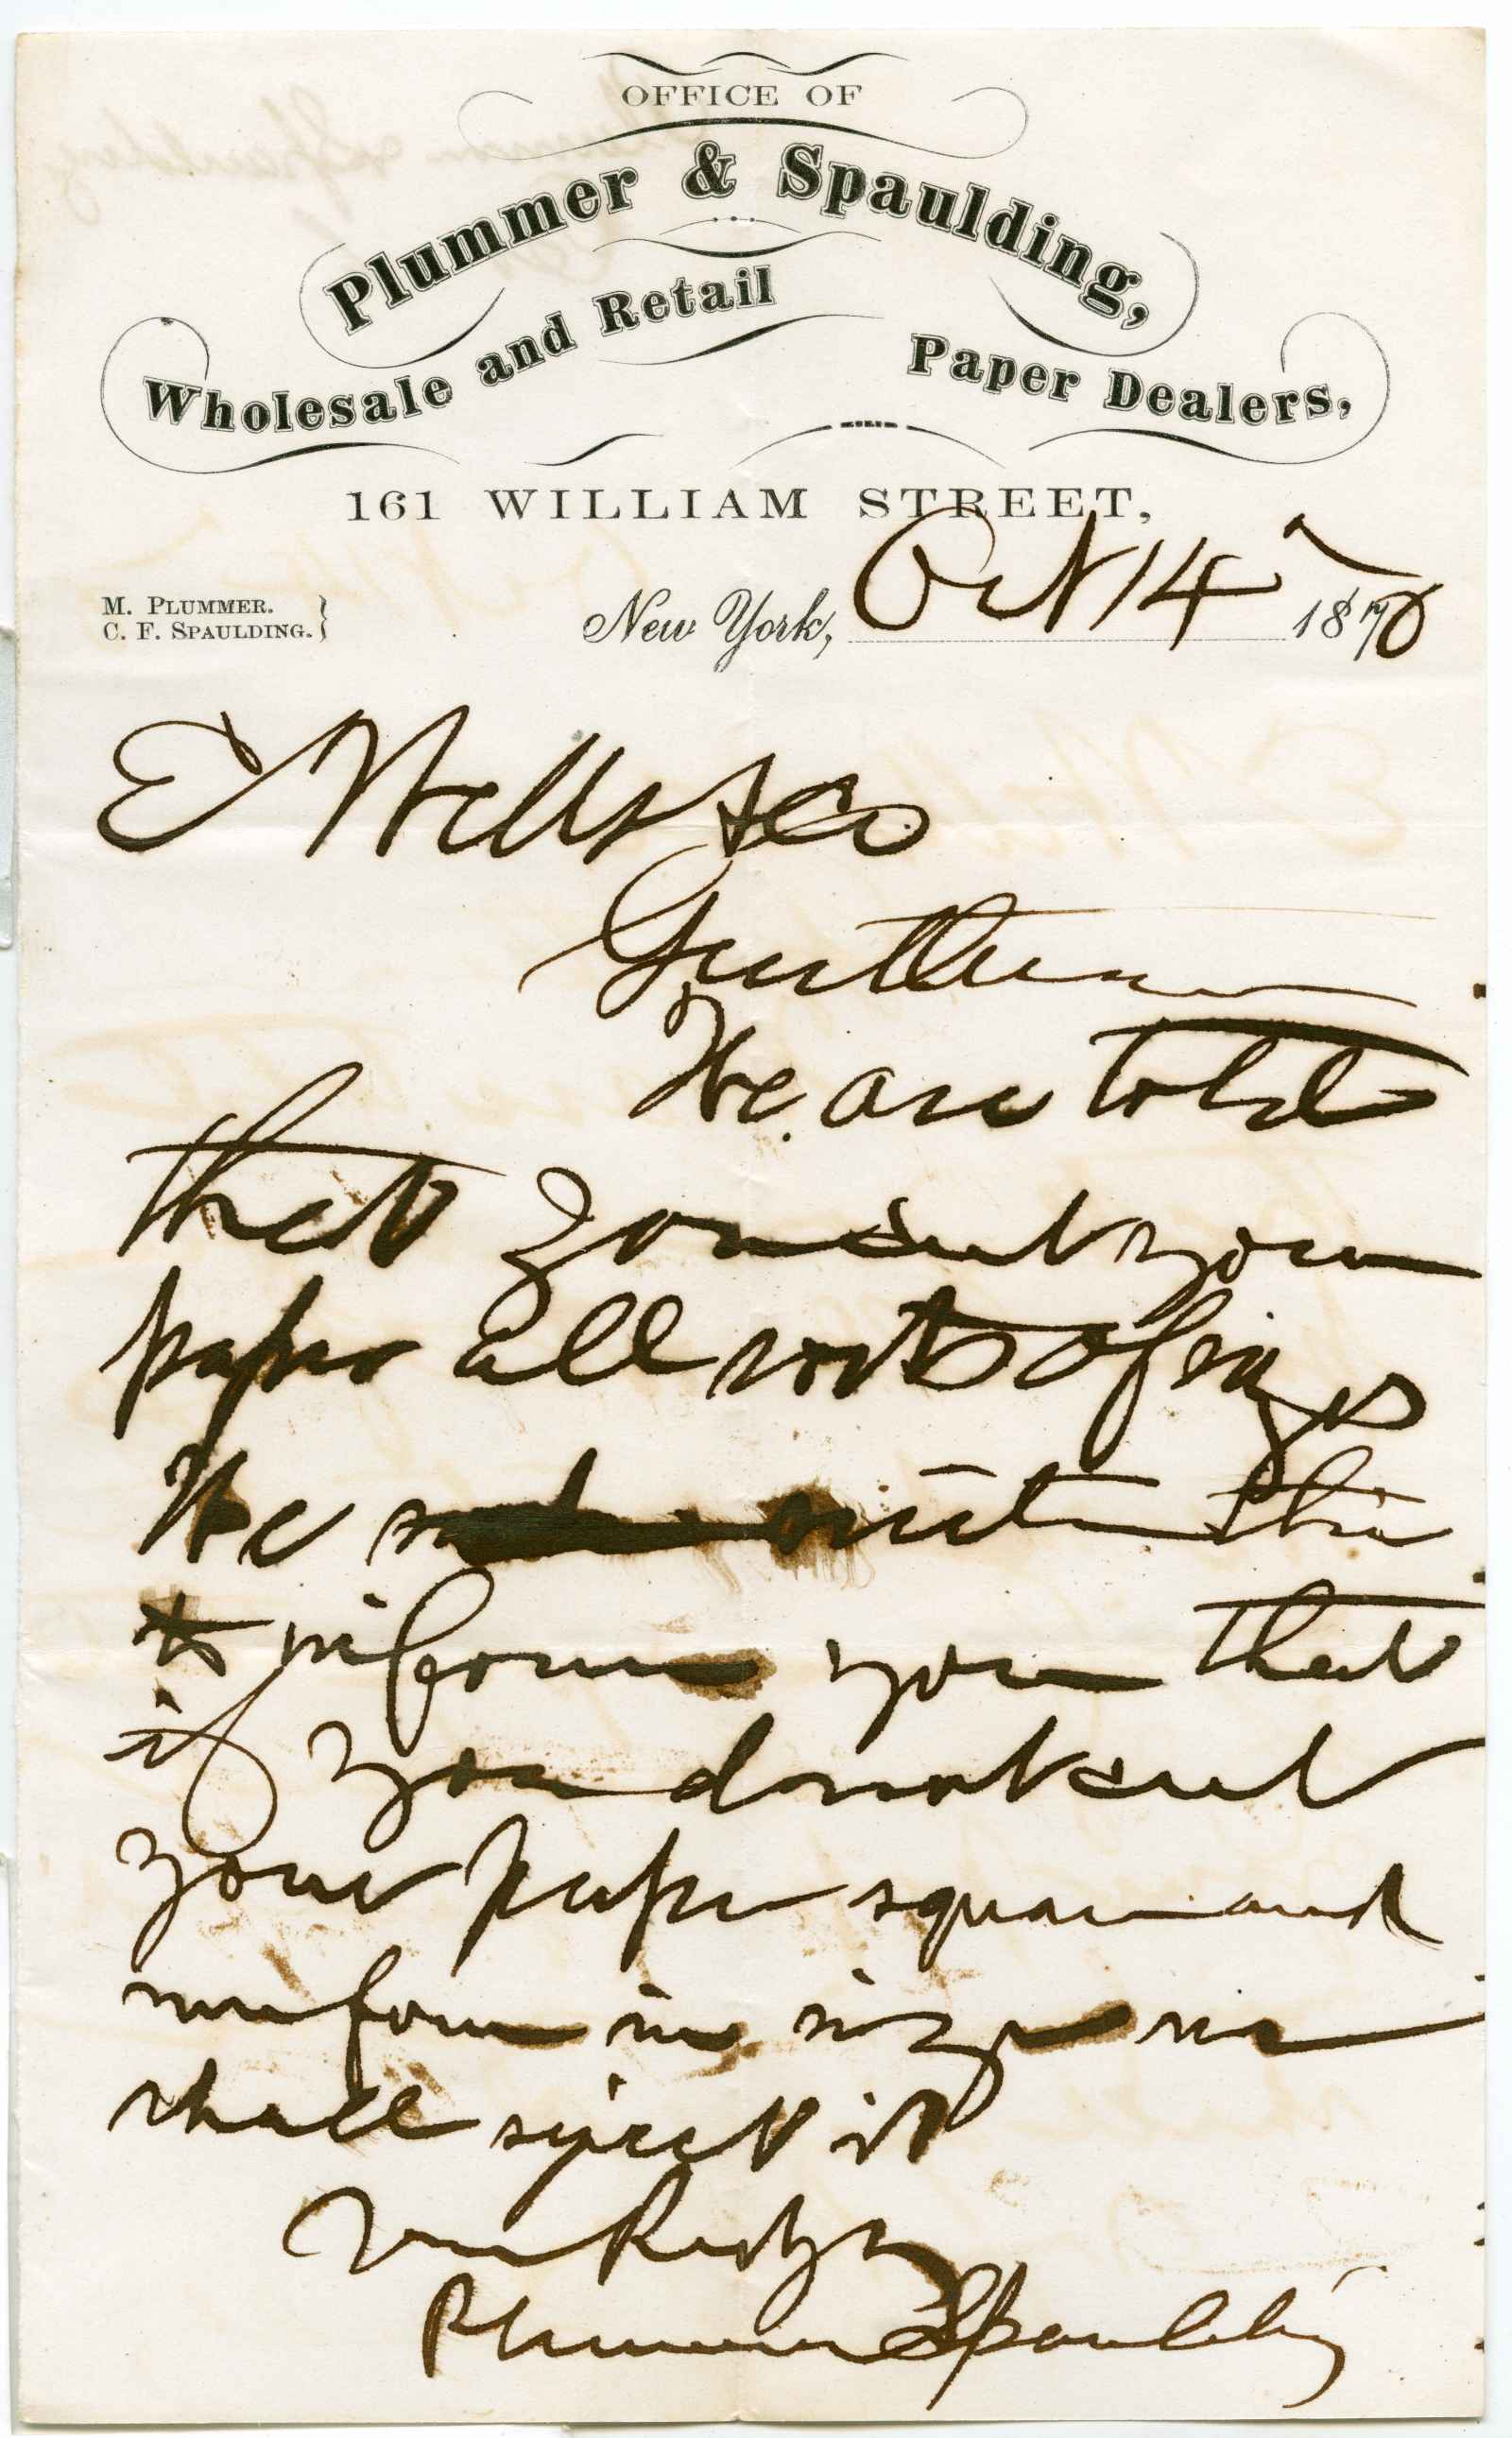 OFFICE OF
Plummer & Spaulding,
Wholesale and Retail Paper Dealers,
161 WILLIAM STREET,
M. PLUMMER.
C. F. SPAULDING.
New York, Oct 14 1870
E Wells & Co
Gentlemen
We are told
that you cut your
paper all sorts of sizes
We write this
to inform you that
if you do not cut
your paper square and
uniform in size we
shall reject it
Plummer & Spaulding